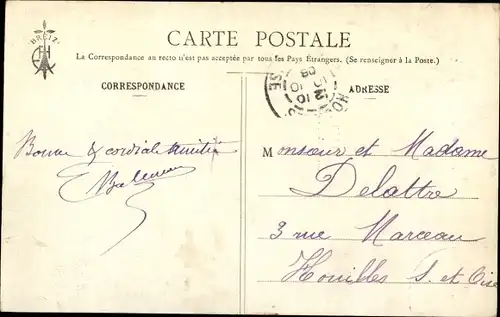 BREIZ
CARTE POSTALE
La Correspondance au recto n'est pas acceptée par tous les Pays Étrangers. (Se renseigner à la Poste.)
CORRESPONDANCE
ADRESSE
Bonne & cordiale amitié
Monsieur et Madame
Delattre
3 rue Marceau
Houilles S. et Oise